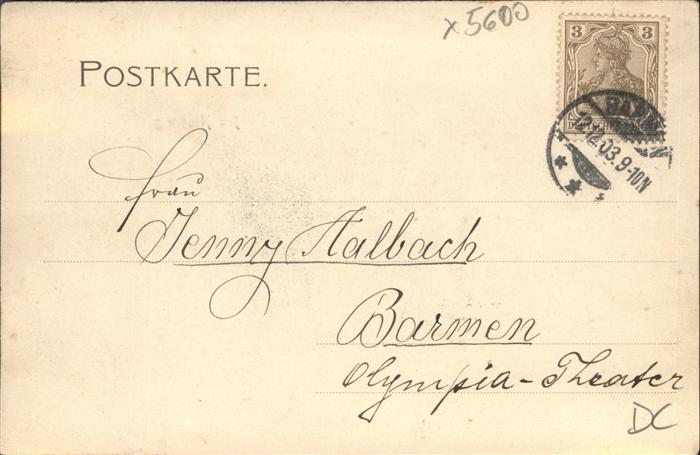 x5600
3 3
POSTKARTE.
12.12.03. 9-10N
Frau
Jenny Halbach
Barmen
Olympia-Theater
DC